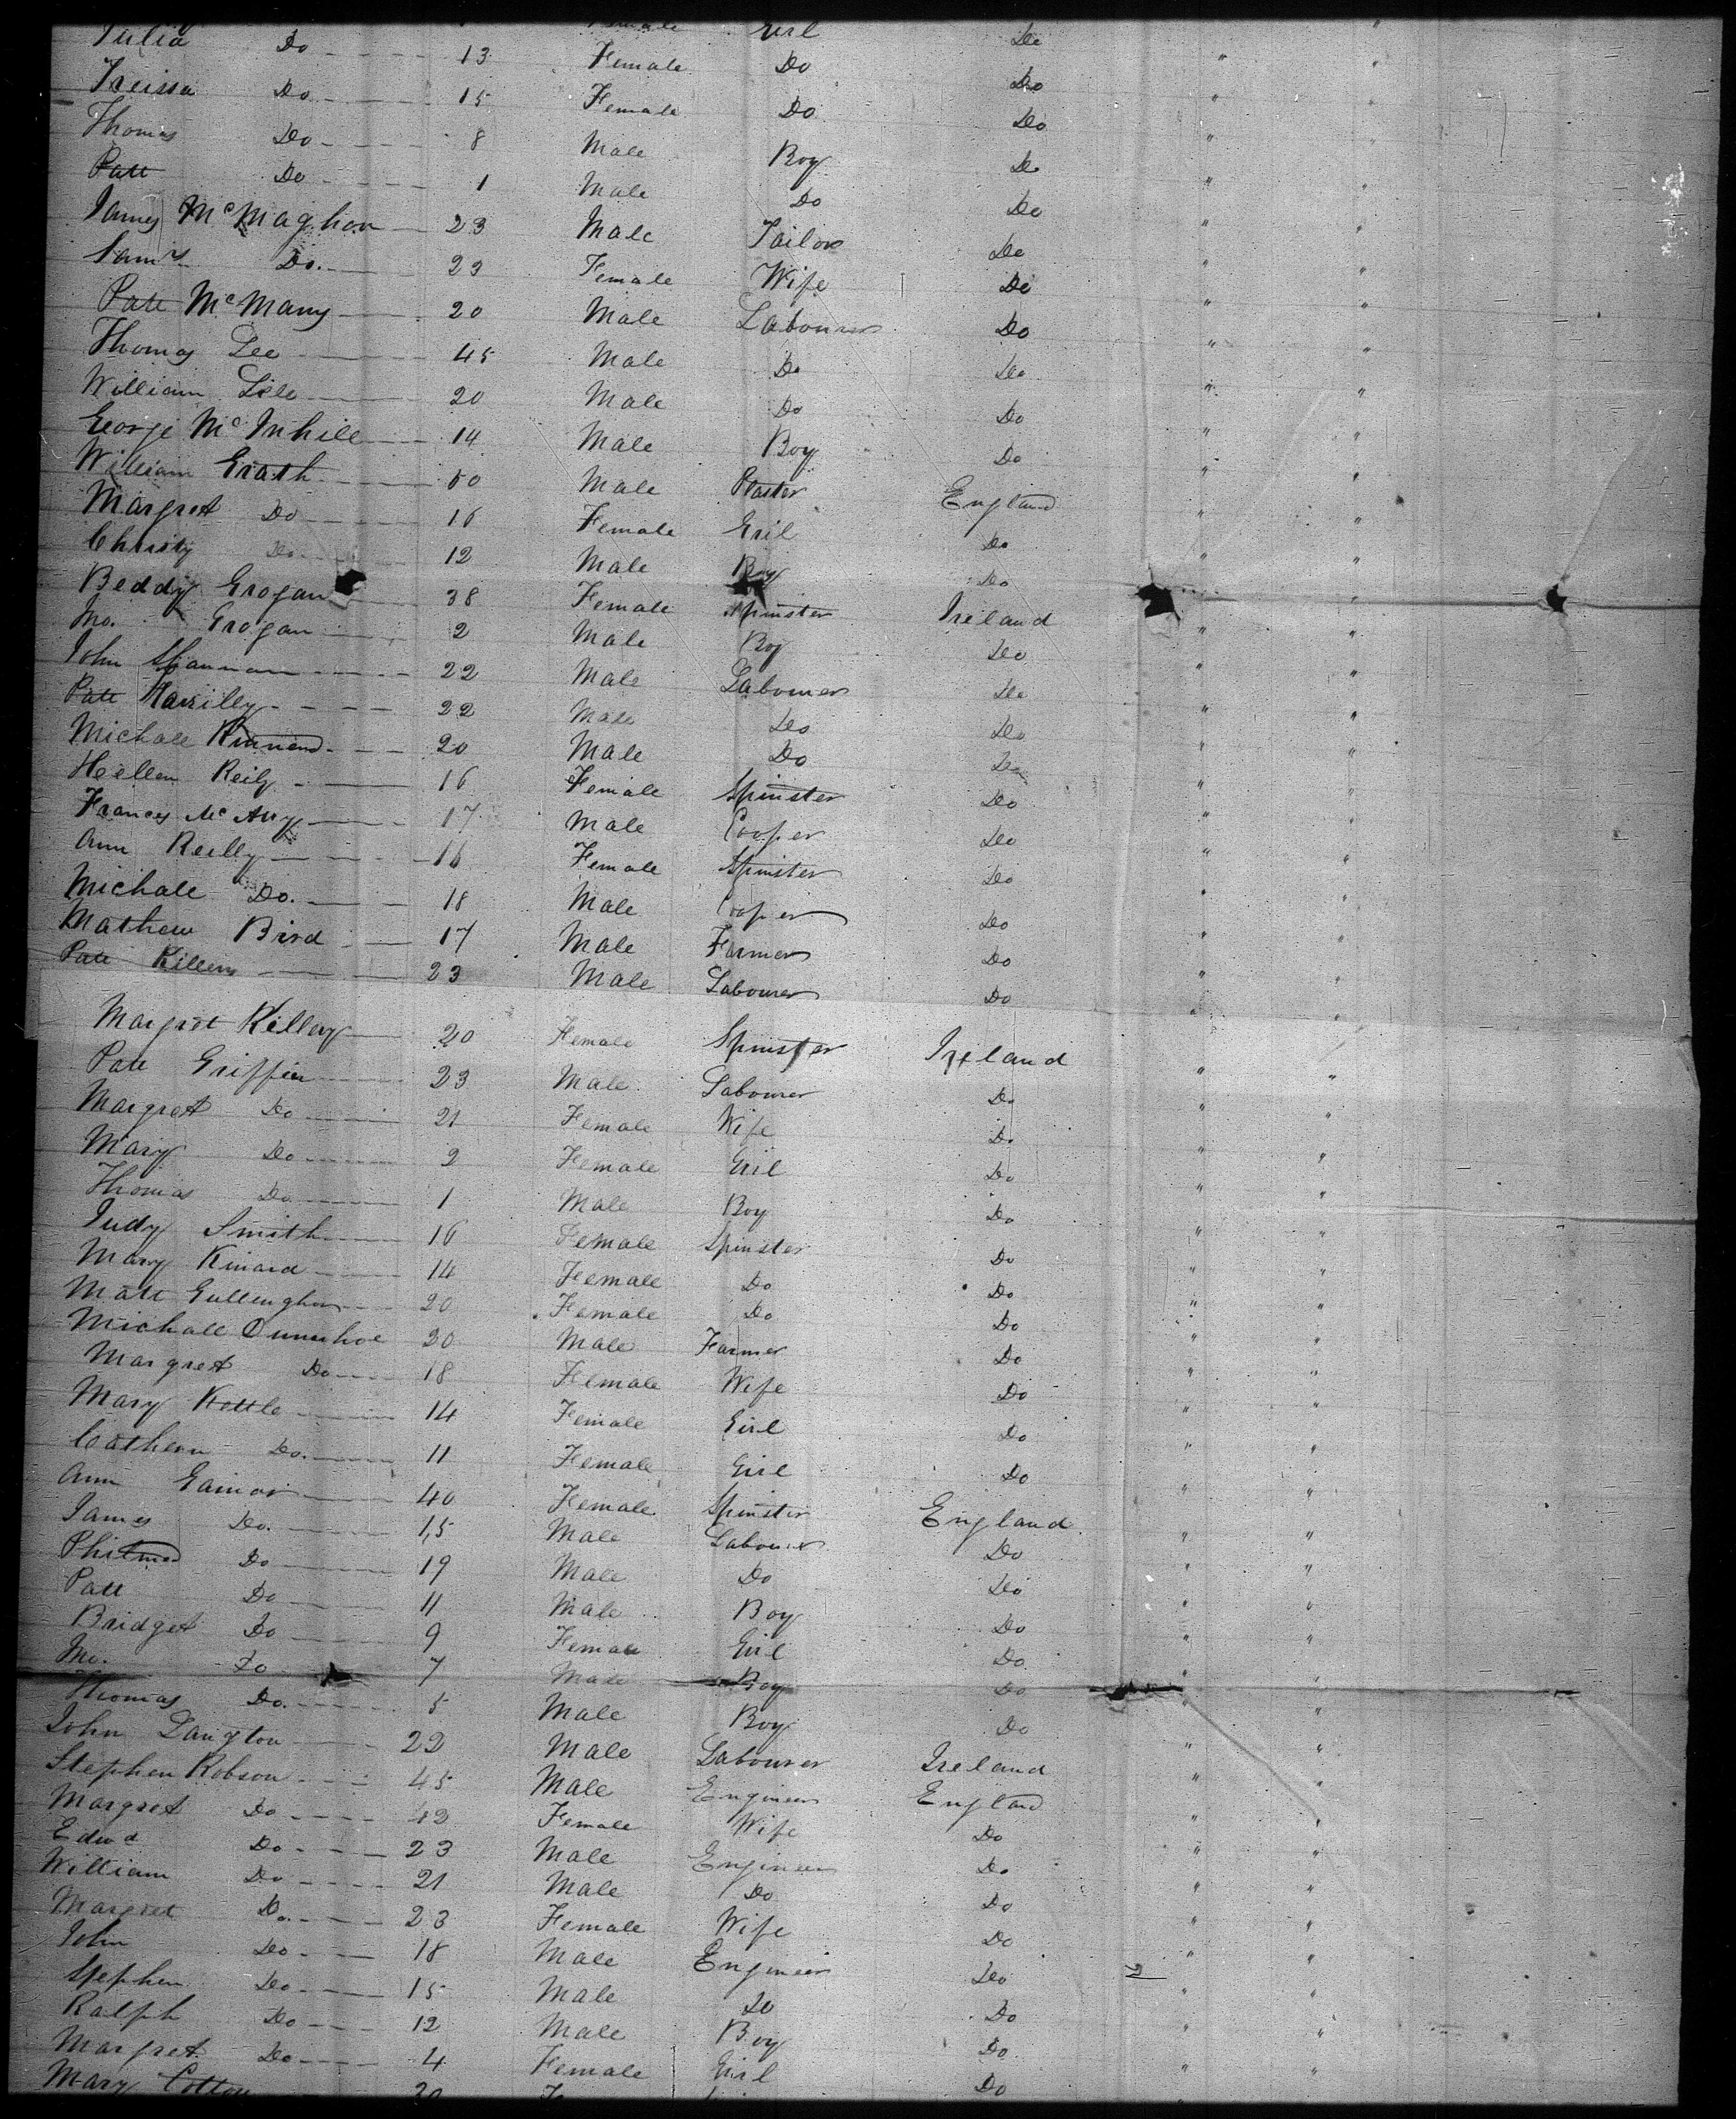 Julia Do 13 Female Do Do " "
Treissa Do 15 Female Do Do " "
Thomas Do 8 Male Boy Do " "
Patt Do 1 Male Do Do " "
James McMaghon 23 Male Tailor Do " "
Do. 23 Female Wife Do " "
Patt McMany 20 Male Labourer Do " "
Thomas Lee 45 Male Do Do " "
William 20 Male Do Do " "
George McInhill 14 Male Boy Do " "
William Grath 50 Male Plaster England " "
Margret Do 16 Female Girl Do " "
Christy Do 12 Male Boy Do " "
Beddy Grogan 38 Female Spinster Ireland " "
Grogan 2 Male Boy Do " "
John Shannan 22 Male Labourer Do " "
Patt 22 Male Do Do " "
Michale 20 Male Do Do " "
Heellen Reily 16 Female Spinster Do " "
Frances 17 Male Cooper Do " "
Ann Reilly 16 Female Spinster Do " "
Michale Do. 18 Male Cooper Do " "
Mathew Bird 17 Male Farmer Do " "
Patt Killery 23 Male Labourer Do " "
Margret Killery 20 Female Spinster Ireland " "
Patt Griffin 23 Male Labourer Do " "
Margret Do 21 Female Wife Do " "
Mary Do 2 Female Girl Do " "
Thomas Do 1 Male Boy Do " "
Judy Smith 16 Female Spinster Do " "
Mary Kinard 14 Female Do Do " "
Matt Gullenghan 20 Female Do Do " "
Michall Dunnhoe 30 Male Farmer Do " "
Margret Do 18 Female Wife Do " "
Mary Kettle 14 Female Girl Do " "
Cathern Do. 11 Female Girl Do " "
Ann Gainor 40 Female Spinster England " "
James Do. 15 Male Labourer Do " "
Do 19 Male Do Do " "
Patt Do 11 Male Boy Do " "
Bridget Do 9 Female Girl Do " "
Do 7 Male Boy Do " "
Thomas Do. 5 Male Boy Do " "
John Langton 22 Male Labourer Ireland " "
Stephen Robson 45 Male Engineer England " "
Margret Do 42 Female Wife Do " "
Edwd Do 23 Male Engineer Do " "
William Do 21 Male Do Do " "
Margret Do. 23 Female Wife Do " "
John Do 18 Male Engineer Do " "
Stephen Do 15 Male Do Do " "
Ralph Do 12 Male Boy Do " "
Margret Do 4 Female Girl Do " "
Mary Cotton